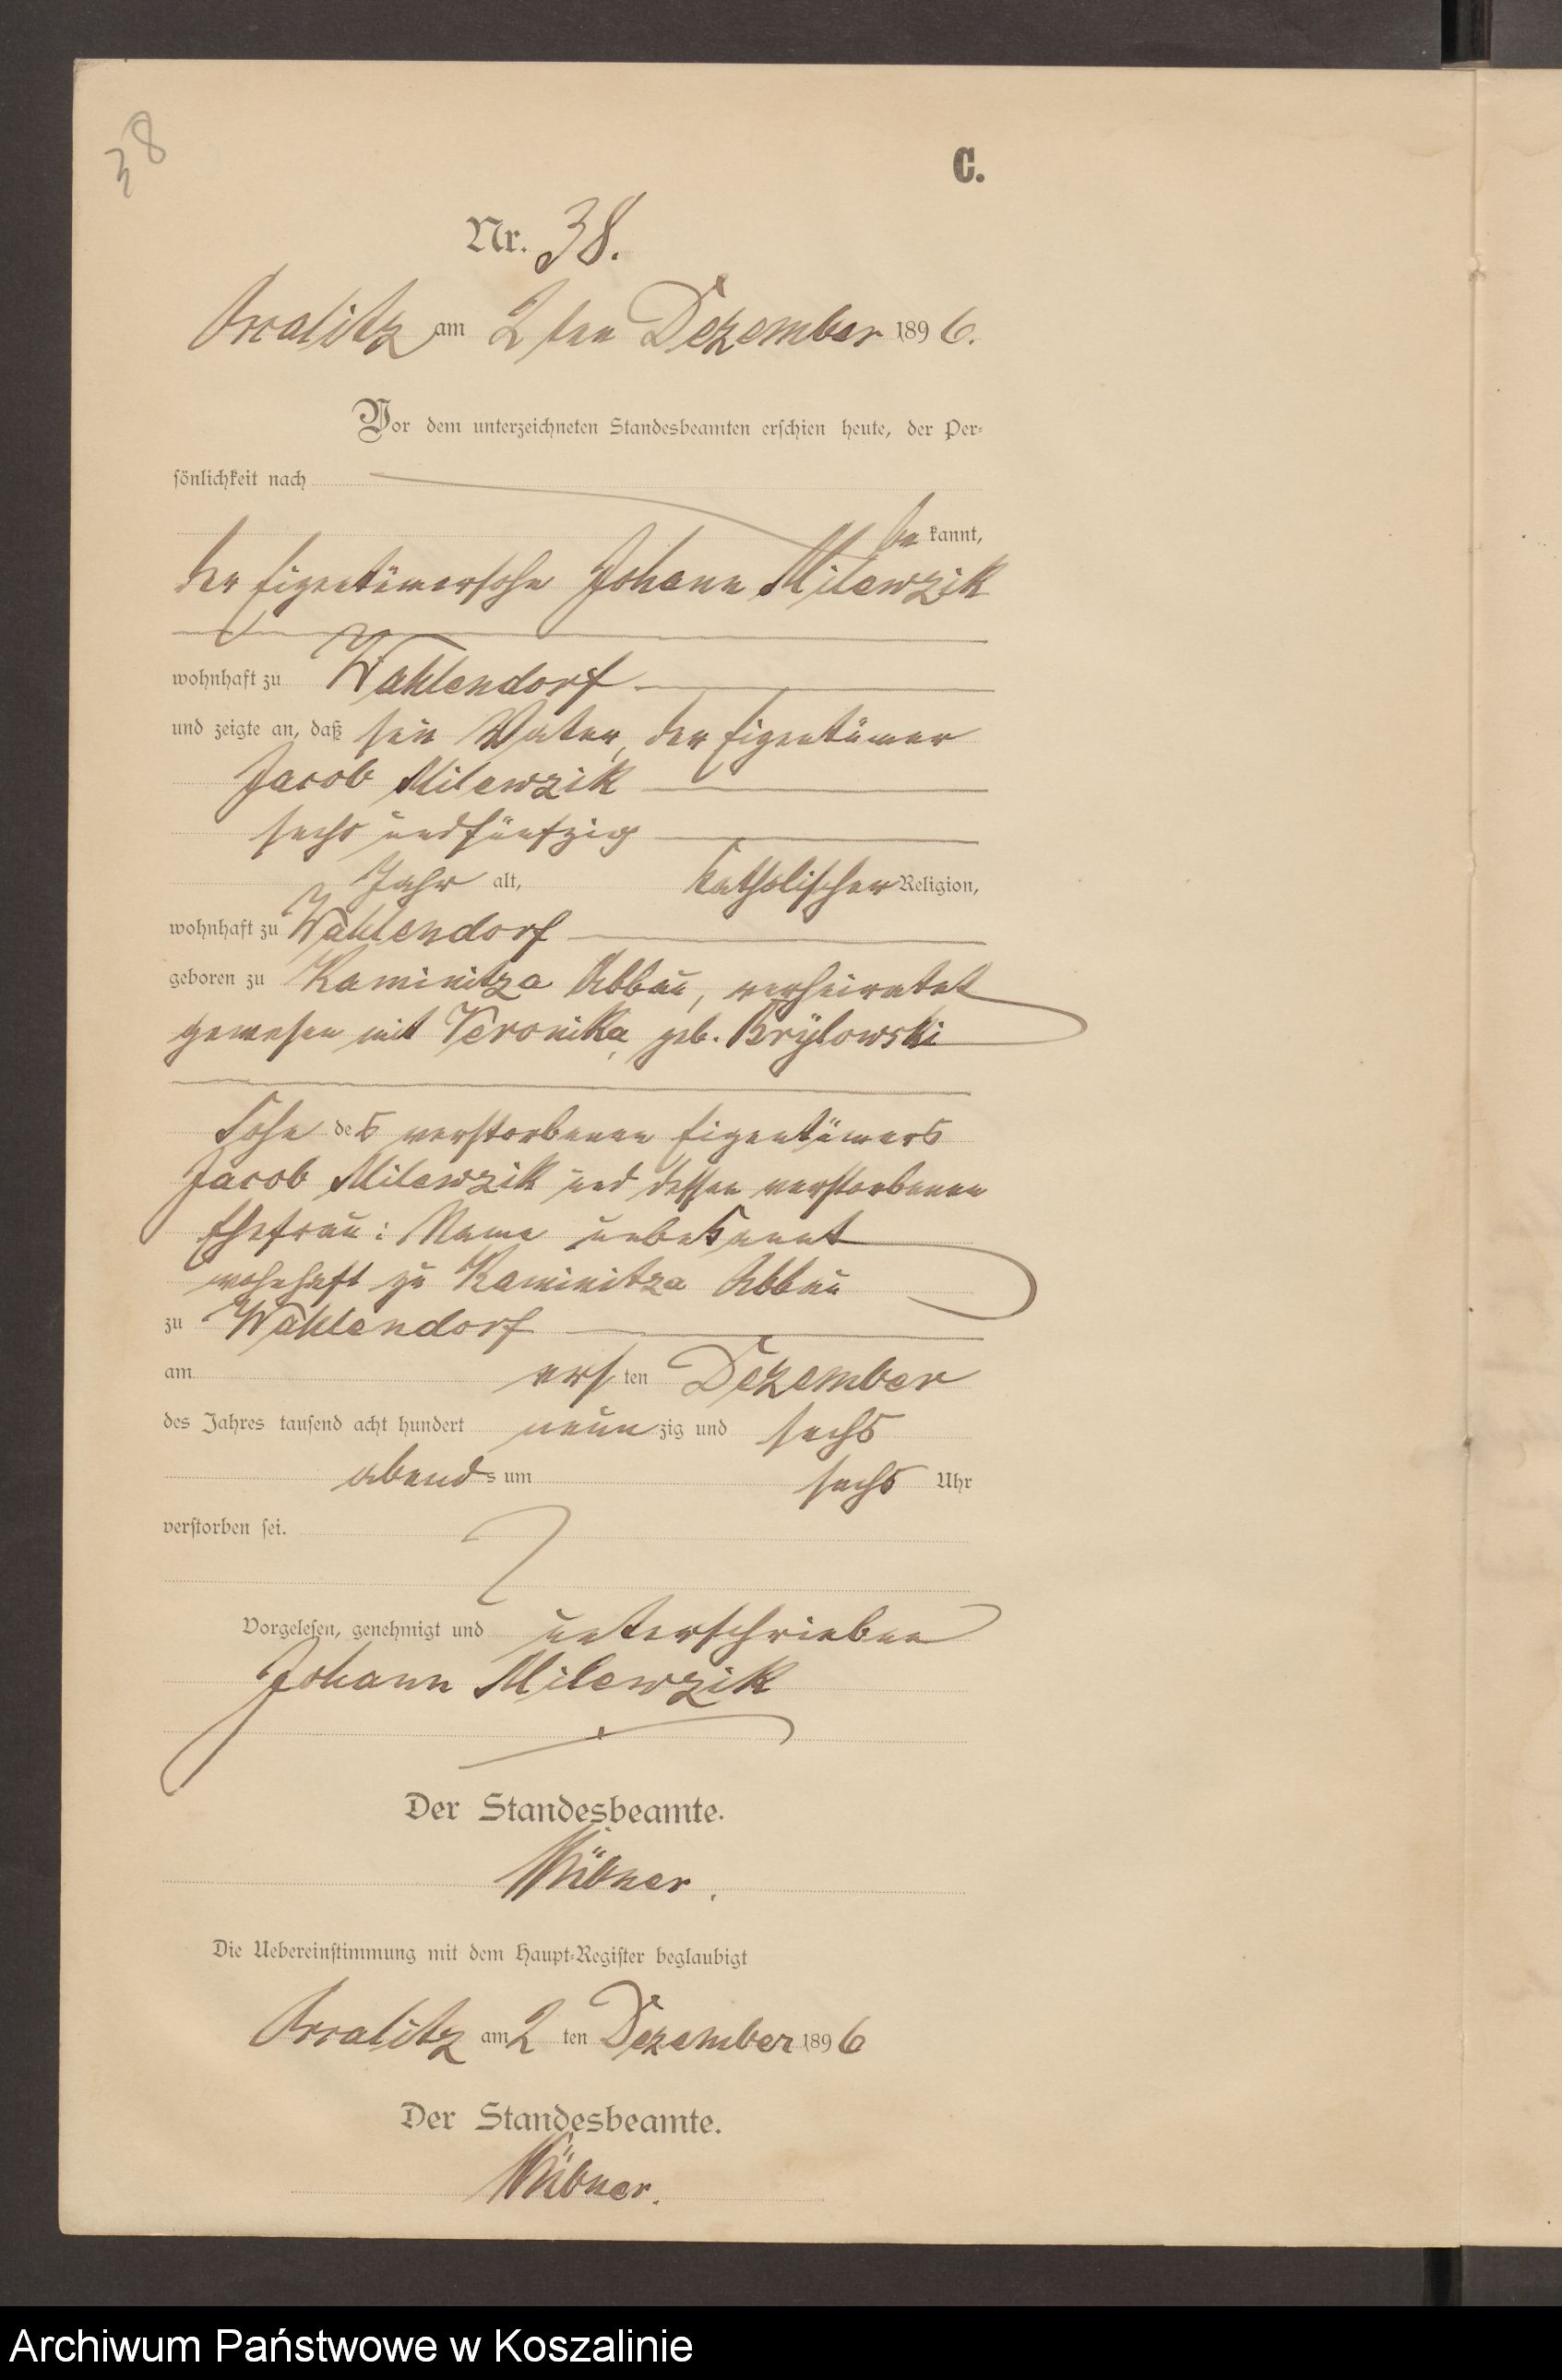 38
C.
Nr. 38.
am 2ten Dezember 1896.
Vor dem unterzeichneten Standesbeamten erschien heute, der Per-
sönlichkeit nach
be kannt,
der Eigentümersohn Johann Milewzik
wohnhaft zu Wahlendorf
und zeigte an, daß sein Vater, der Eigentümer
Jacob Milewzik
sechs und fünfzig
Jahr alt, katholischer Religion,
wohnhaft zu Wahlendorf
geboren zu Kaminitza Abbau, verheiratet
gewesen mit Veronika, geb. Brÿlowski
Sohn des verstorbenen Eigentümers
Jacob Milewzik und dessen verstorbenen
Ehefrau: Name unbekannt
wohnhaft zu Kaminitza Abbau
zu Wahlendorf
am ersten Dezember
des Jahres tausend acht hundert neunzig und sechs
abends um sechs Uhr
verstorben sei.
Vorgelesen, genehmigt und unterschrieben
Johann Milewzik
Der Standesbeamte.
Die Uebereinstimmung mit dem Haupt-Register beglaubigt
am 2 ten Dezember 1896
Der Standesbeamte.
Archiwum Państwowe w Koszalinie